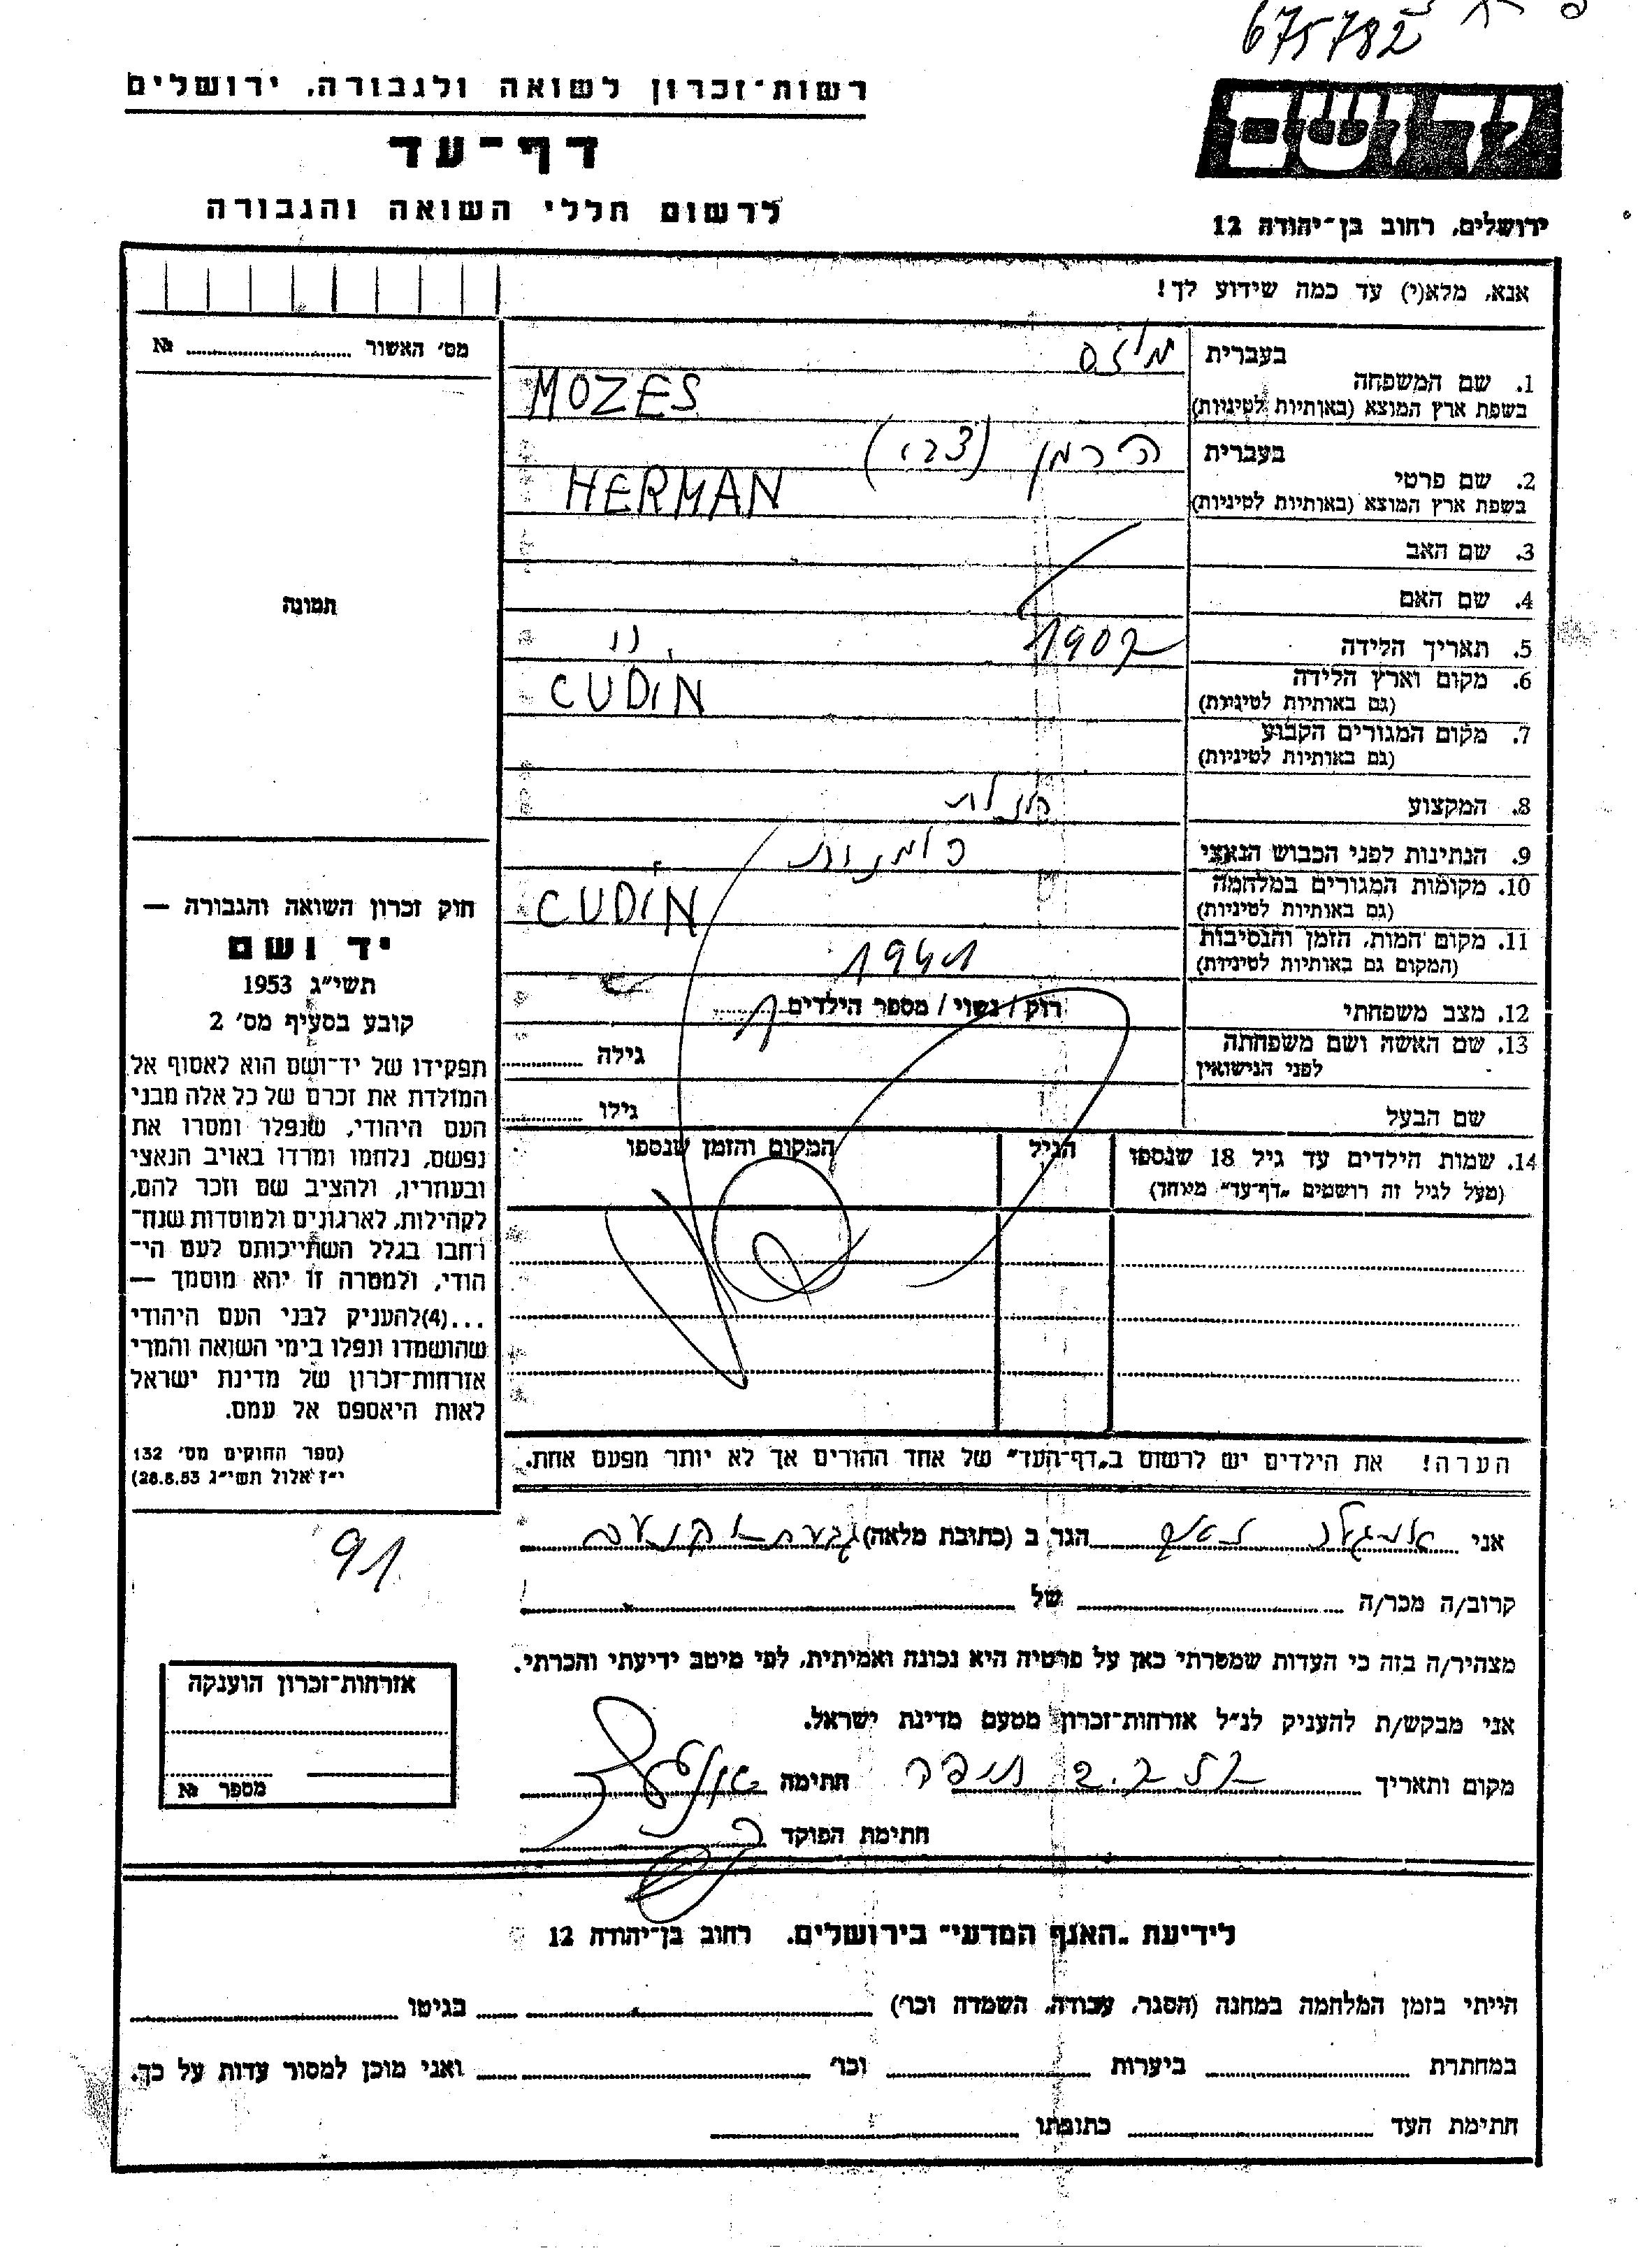 675782
רשות־זכרון לשואה ולגבורה, ירושלים
דף־עד
לרשום חללי השואה והגבורה
יד ושם
ירושלים, רחוב בן־יהודה 12
אנא, מלא(י) עד כמה שידוע לך!
מס׳ האשור № 
תמונה
1. שם המשפחה
בעברית מוזס
בשפת ארץ המוצא (באותיות לטיניות) MOZES
2. שם פרטי
בעברית הרמן (צבי)
בשפת ארץ המוצא (באותיות לטיניות) HERMAN
3. שם האב
4. שם האם
5. תאריך הלידה 1907
6. מקום וארץ הלידה
(גם באותיות לטיניות) CUDIN
7. מקום המגורים הקבוע
(גם באותיות לטיניות)
8. המקצוע
9. הנתינות לפני הכבוש הנאצי רומנית
10. מקומות המגורים במלחמה
(גם באותיות לטיניות) CUDIN
11. מקום המות, הזמן והנסיבות 1941
(המקום גם באותיות לטיניות)
12. מצב משפחתי רוק / נשוי / מספר הילדים
13. שם האשה ושם משפחתה גילה
לפני הנישואין
שם הבעל גילו
14. שמות הילדים עד גיל 18 שנספו הגיל המקום והזמן שנספו
(מעל לגיל זה רושמים „דף־עד” מיוחד)
הערה! את הילדים יש לרשום ב„דף־העד” של אחד ההורים אך לא יותר מפעם אחת.
חוק זכרון השואה והגבורה —
יד ושם
תשי״ג 1953
קובע בסעיף מס׳ 2
תפקידו של יד־ושם הוא לאסוף אל
המולדת את זכרם של כל אלה מבני
העם היהודי, שנפלו ומסרו את
נפשם, נלחמו ומרדו באויב הנאצי
ובעוזריו, ולהציב שם וזכר להם,
לקהילות, לארגונים ולמוסדות שנח־
רבו בגלל השתייכותם לעם הי־
הודי, ולמטרה זו יהא מוסמך —
...(4)להעניק לבני העם היהודי
שהושמדו ונפלו בימי השואה והמרי
אזרחות־זכרון של מדינת ישראל
לאות היאספם אל עמם.
(ספר החוקים מס׳ 132
י״ז אלול תשי״ג 28.8.53)
91
אני הגר ב (כתובת מלאה)
קרוב/ה מכר/ה של
מצהיר/ה בזה כי העדות שמסרתי כאן על פרטיה היא נכונה ואמיתית, לפי מיטב ידיעתי והכרתי.
אני מבקש/ת להעניק לנ״ל אזרחות־זכרון מטעם מדינת ישראל.
מקום ותאריך חתימה
חתימת הפוקד
אזרחות־זכרון הוענקה
מספר №
לידיעת „האגף המדעי” בירושלים. רחוב בן־יהודה 12
הייתי בזמן המלחמה במחנה (הסגר, עבודה, השמדה וכו׳) בגיטו
במחתרת ביערות וכו׳ ואני מוכן למסור עדות על כך.
חתימת העד כתובתו